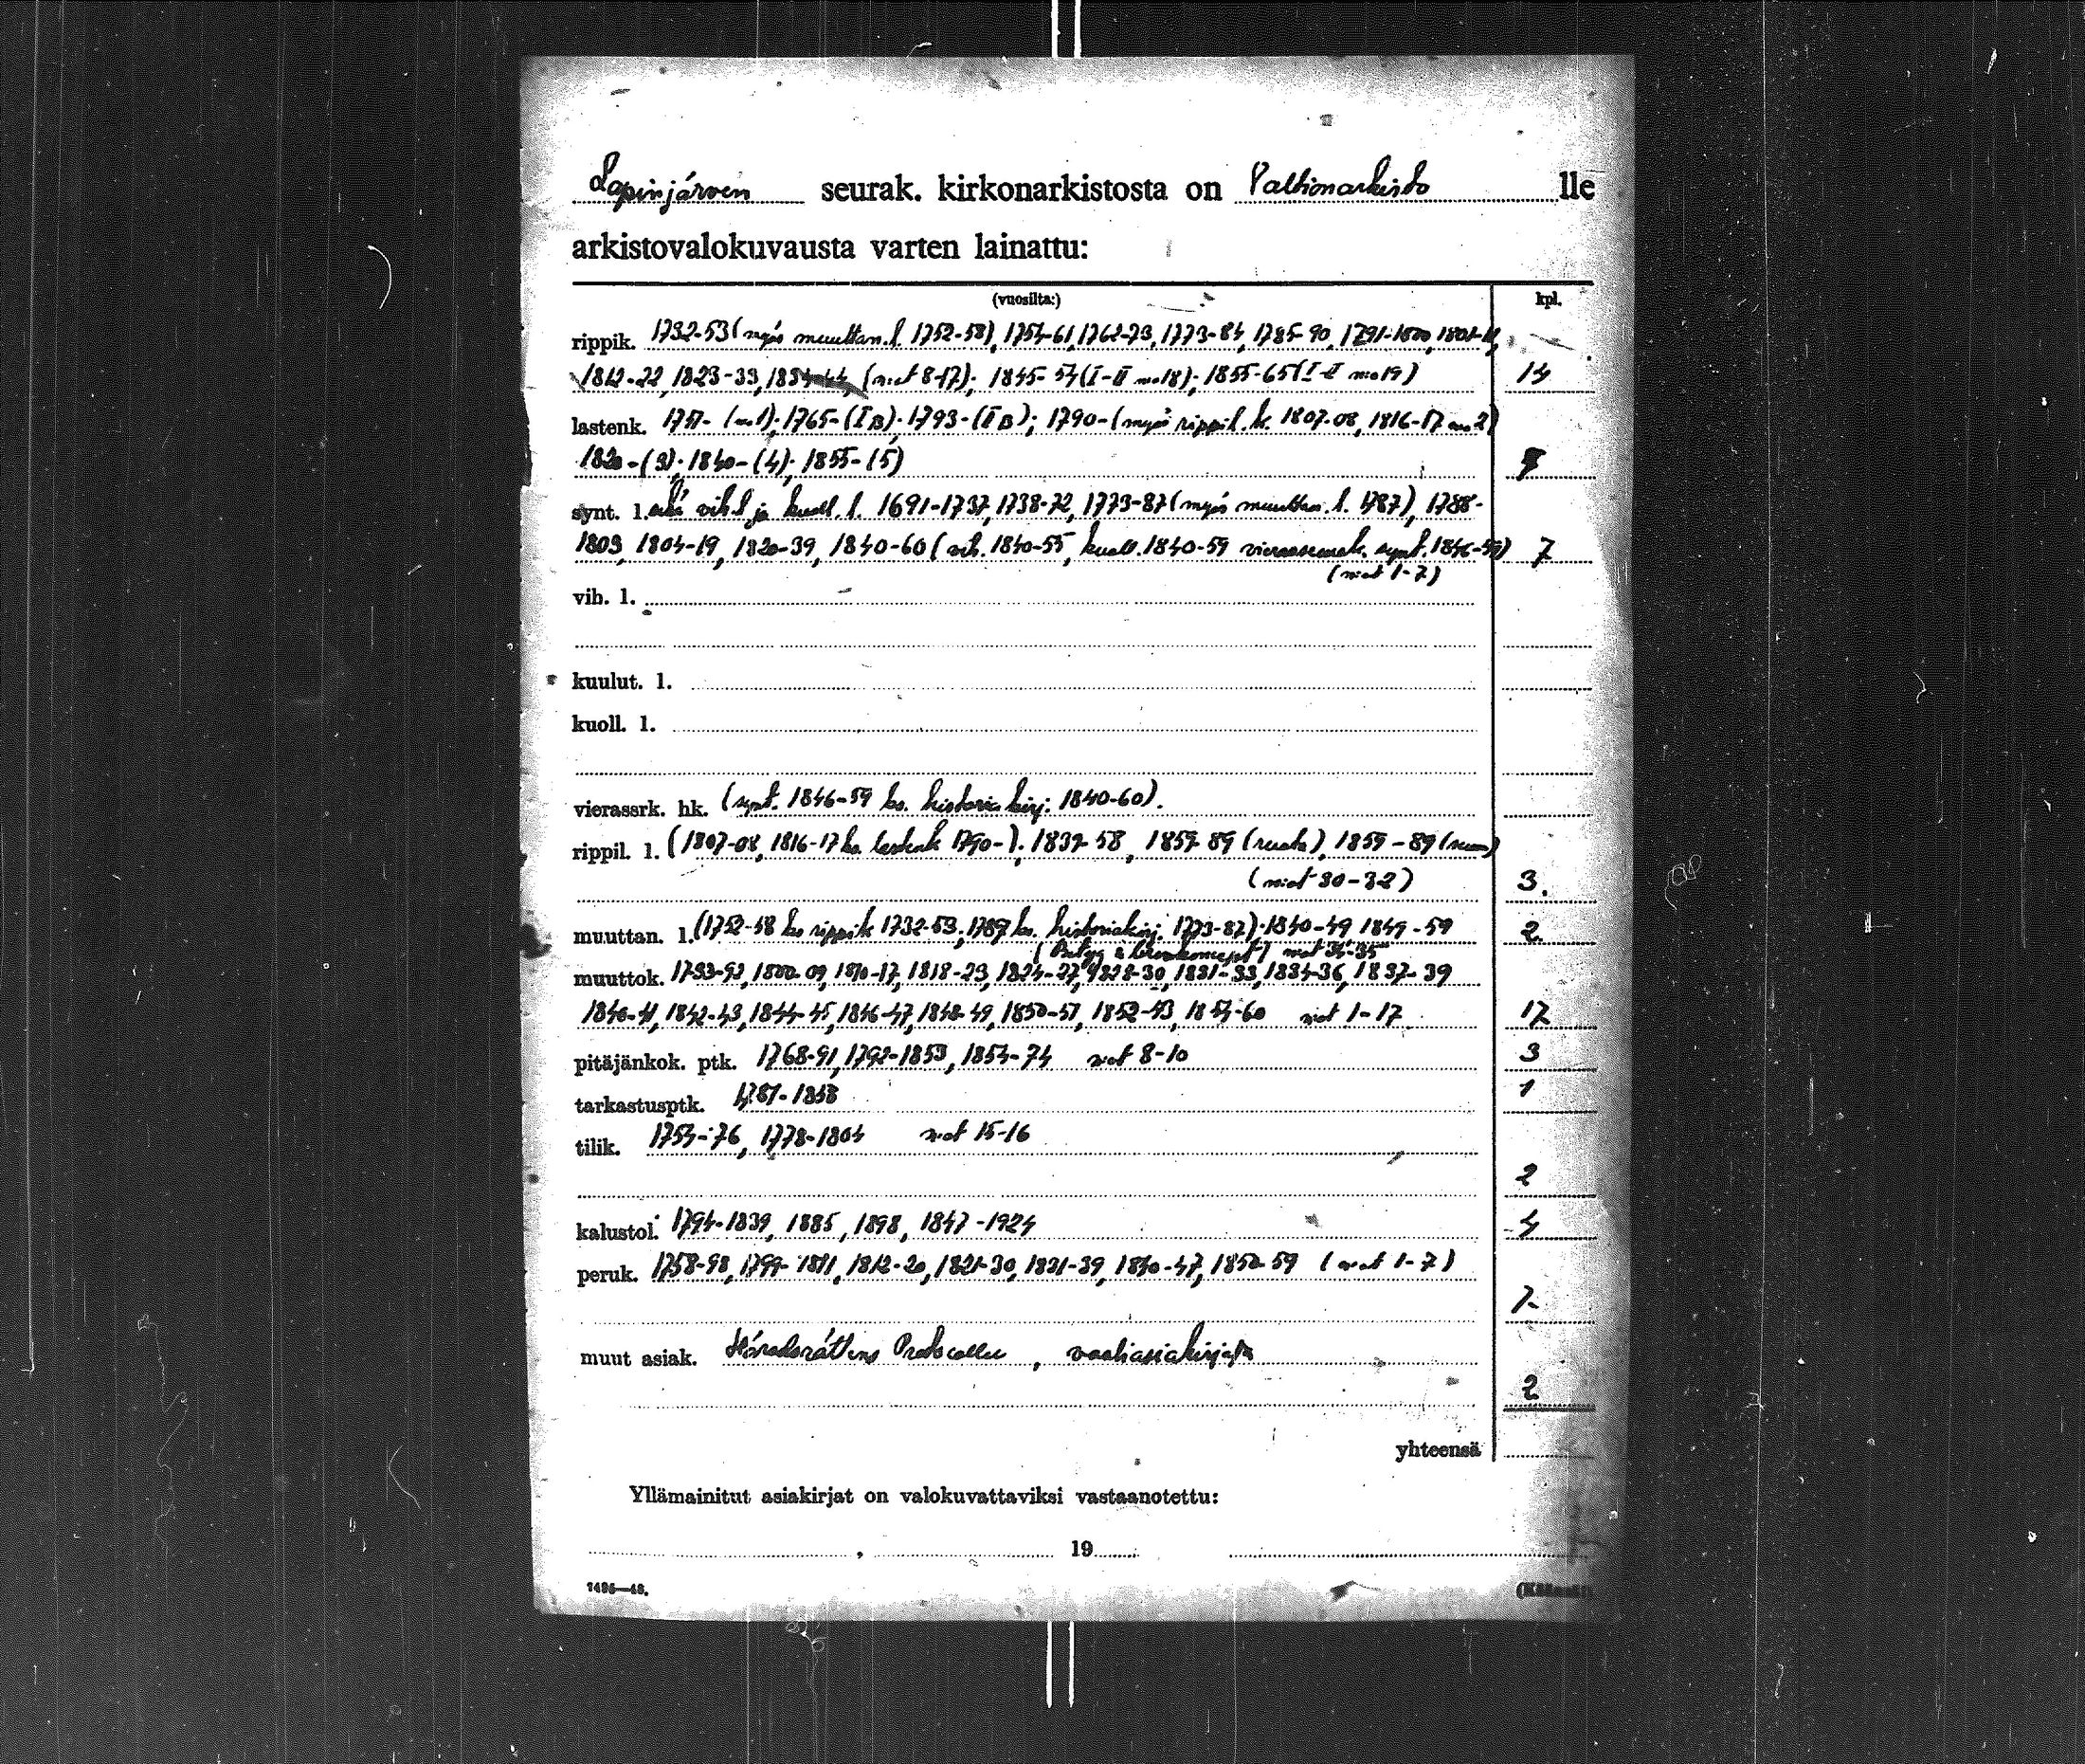 Lapinjärven seurak. kirkonarkistosta on Valtionarkisto lle
arkistovalokuvausta varten lainattu:
(vuosilta:) kpl.
rippik. 1732-53 (myös muuttan. l. 1752-58), 1754-61, 1762-73, 1773-84, 1785-90, 1791-1800, 1801-11,
1812-22, 1823-33, 1834-44, (n:ot 8-17); 1845-54 (I-II n:o 18); 1855-65 (I-II n:o 19) 14
lastenk. 1751- (n:o 1); 1765- (I B); 1793- (II B); 1790- (myös rippil. k. 1807-08, 1816-17 n:o 2)
1820- (3); 1840- (4); 1855- (5)
synt. l. vih. l. ja kuoll. l. 1691-1737, 1738-72, 1773-87 (myös muuttan. l. 1787), 1788-
1803, 1804-19, 1820-39, 1840-60 (vih. 1840-55, kuoll. 1840-59 vierasseurak. synt. 1846-59) 7
(n:ot 1-7)
vih. l.
kuulut. l.
kuoll. l.
vierassrk. hk. (synt. 1846-59 ks. historiakirj. 1840-60).
rippil. l. (1807-08, 1816-17 ks. lastenk 1790-). 1839-58, 1859-89 (ruots), 1859-89 (suom)
(n:ot 30-32) 3.
muuttan. l. (1752-58 ks rippik 1732-53; 1787 ks. historiakirj. 1773-87). 1840-49 1849-59 2
n:ot 34-35
muuttok. 1793-92, 1800-09, 1810-17, 1818-23, 1824-27, 1828-30, 1831-33, 1834-36, 1837-39
1840-41, 1842-43, 1844-45, 1846-47, 1848-49, 1850-51, 1852-53, 1854-60 n:ot 1-17 17
pitäjänkok. ptk. 1768-91, 1792-1853, 1854-74 n:ot 8-10 3
tarkastusptk. 1781-1858 1
tilik. 1754-76, 1778-1804 n:ot 15-16
2
kalustol. 1794-1839, 1885, 1898, 1847-1924 4
peruk. 1758-98, 1799-1811, 1812-20, 1821-30, 1831-39, 1840-47, 1850-59 (n:ot 1-7)
7
muut asiak. Häradsrättens Protocoller, vaaliasiakirjoja
2
yhteensä
Yllämainitut asiakirjat on valokuvattaviksi vastaanotettu:
, 19
1486—48.